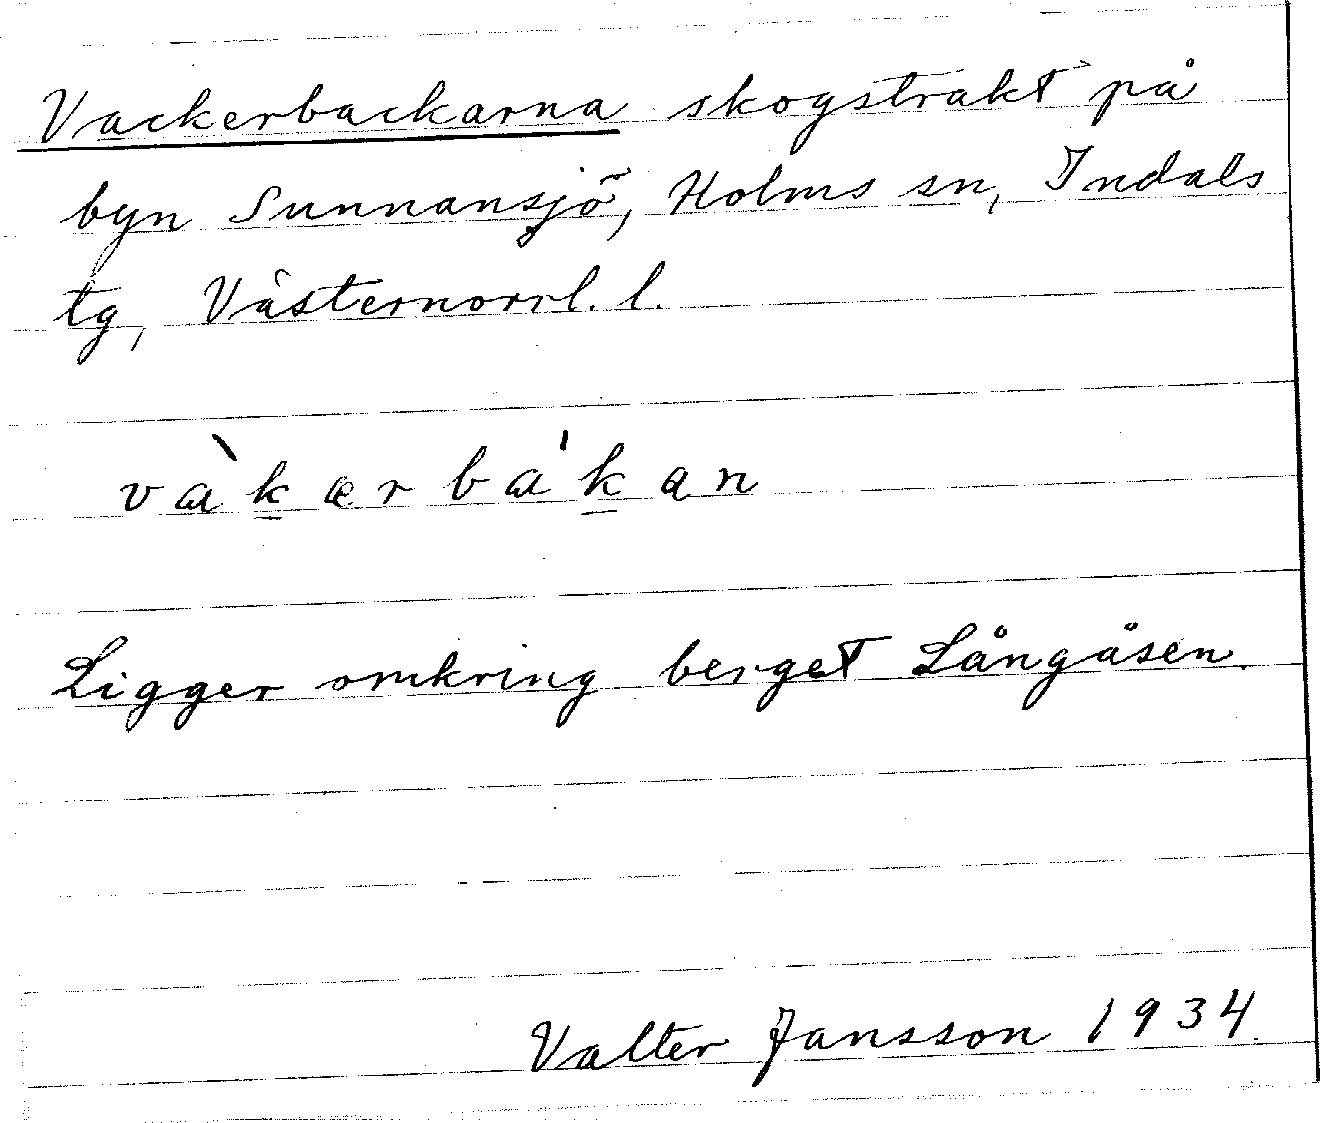 Vackerbackarna skogstrakt på
byn Sunnansjö, Holms sn, Indals
tg, Västernorrl. l.
vàk̲ærba̍k̲an
Ligger omkring berget Långåsen.
Valter Jansson 1934.